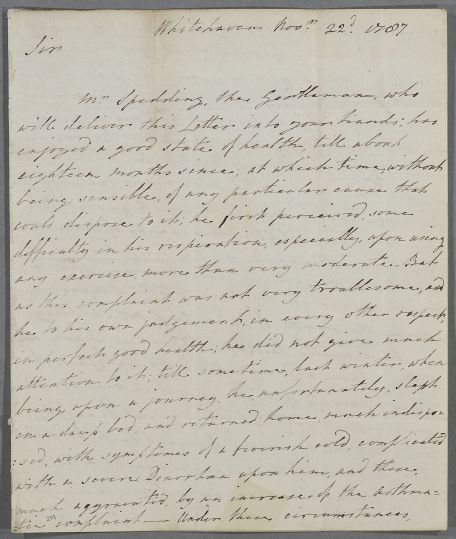 Whitehaven Nov.r 22.d 1787
Sir
Mr. Spedding, the Gentleman, who
will deliver this Letter into your hands; has
enjoyed a good state of health, till about
eighteen months since; at which time, without
being sensible, of any particular cause that
could dispose to it; he first perceived, some
difficulty in his respiration, especially, upon using
any exercise, more than very moderate. But
as this complaint, was not very troublesome, and
he to his own judgement, in every other respect,
in perfect good health; he did not give much
attention to it; till sometime, last winter, when
being upon a journey, he, unfortunately, slept
in a damp bed, and returned home much indispo
:sed, with symptoms of a feverish cold, complicated
with a severe Diarrhœa upon him, and these
much aggravated, by an increase, of the asthma-
tic complaint — Under these circumstances,